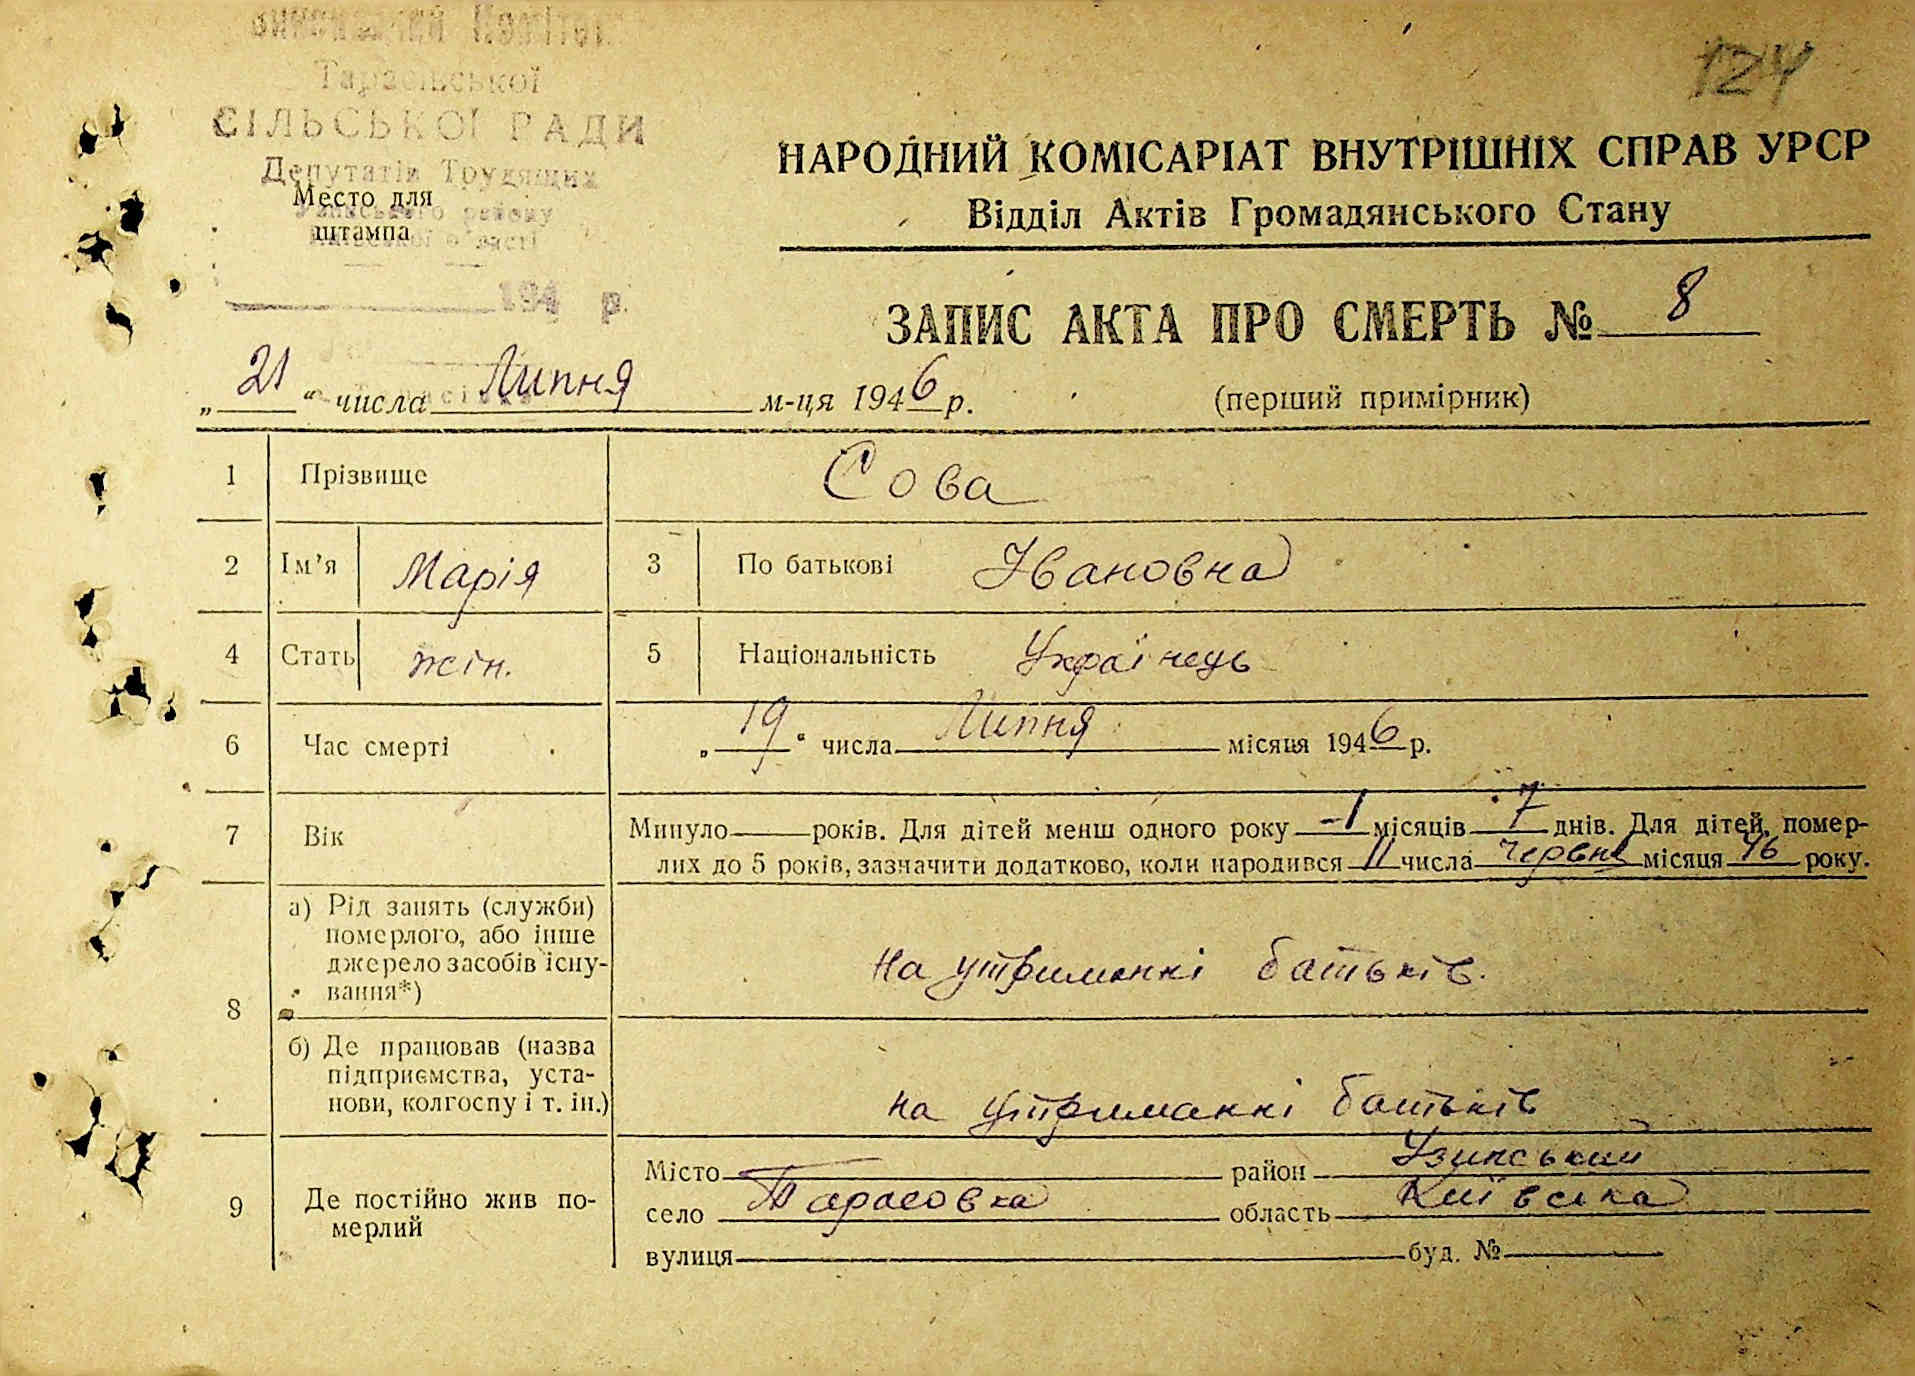 124
Тарасівської
СІЛЬСЬКОЇ РАДИ
Депутатів Трудящих
Место для
штампа
району
області
194 р.
НАРОДНИЙ КОМІСАРІАТ ВНУТРІШНІХ СПРАВ УРСР
Відділ Актів Громадянського Стану
ЗАПИС АКТА ПРО СМЕРТЬ № 8
„21“ числа Липня м-ця 1946 р.
(перший примірник)
1 Прізвище Сова
2 Ім'я Марія 3 По батькові Івановна
4 Стать жін. 5 Національність Українець
6 Час смерті „19“ числа Липня місяця 1946 р.
7 Вік Минуло років. Для дітей менш одного року -1 місяців 7 днів. Для дітей, помер-
лих до 5 років, зазначити додатково, коли народився 11 числа червня місяця 46 року.
8 а) Рід занять (служби)
померлого, або інше
джерело засобів існу-
вання*)
На утриманні батьків.
б) Де працював (назва
підприємства, уста-
нови, колгоспу і т. ін.)
на утриманні батьків
9 Де постійно жив по-
мерлий
Місто район Узинський
село Тарасовка область Київська
вулиця буд. №